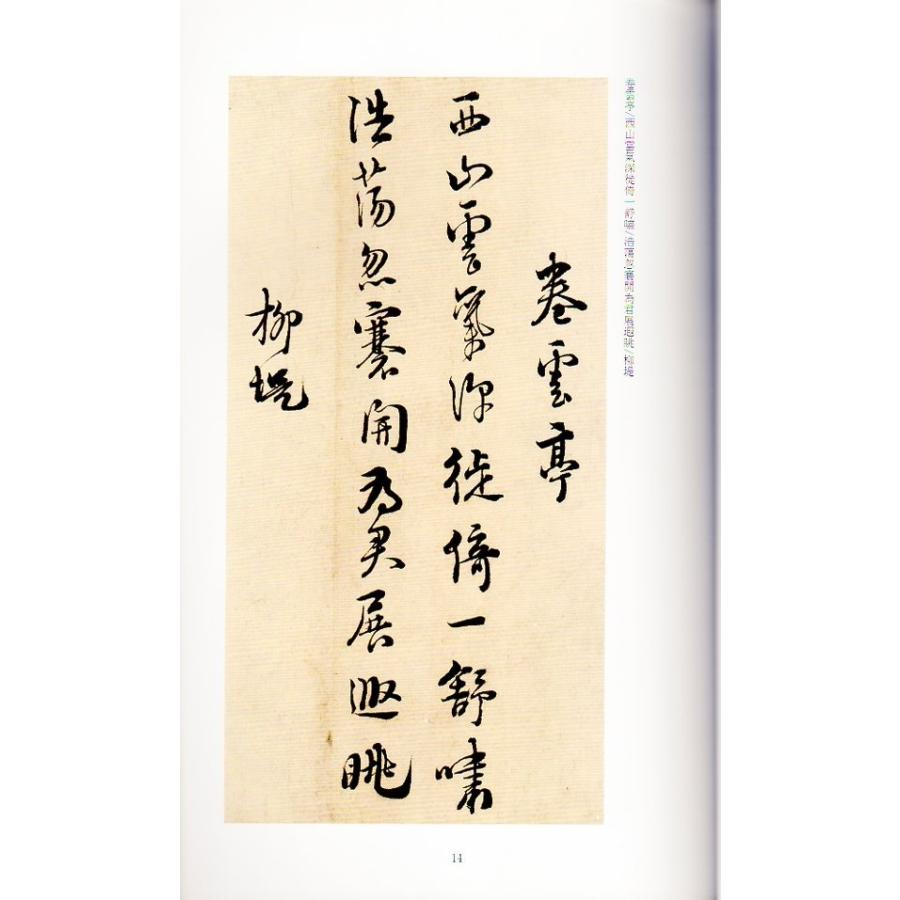 卷雲亭
西山雲氣深徙倚一舒嘯
浩蕩忽褰開為君展遐眺
柳堤
卷雲亭/西山雲氣深徙倚一舒嘯/浩蕩忽褰開為君展遐眺/柳堤
14